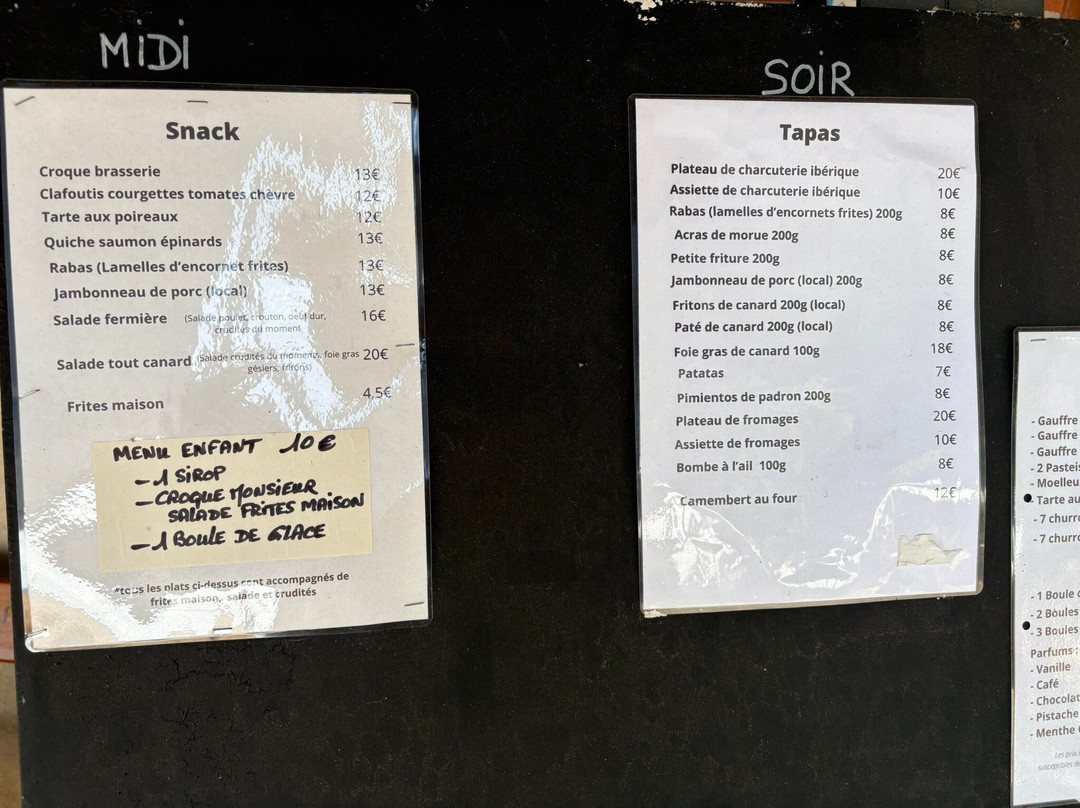 MIDI
Snack
Croque brasserie 13€
Clafoutis courgettes tomates chèvre 12€
Tarte aux poireaux 12€
Quiche saumon épinards 13€
Rabas (Lamelles d'encornet frites) 13€
Jambonneau de porc (local) 13€
Salade fermière (Salade poulet, crouton, oeuf dur, 16€
crudités du moment
Salade tout canard (Salade crudités du moments, foie gras 20€
gésiers, fritons)
Frites maison 4,5€
MENU ENFANT 10€
- 1 SIROP
- CROQUE MONSIEUR
SALADE FRITES MAISON
- 1 BOULE DE GLACE
*tous les plats ci-dessus sont accompagnés de
frites maison, salade et crudités
SOIR
Tapas
Plateau de charcuterie ibérique 20€
Assiette de charcuterie ibérique 10€
Rabas (lamelles d'encornets frites) 200g 8€
Acras de morue 200g 8€
Petite friture 200g 8€
Jambonneau de porc (local) 200g 8€
Fritons de canard 200g (local) 8€
Paté de canard 200g (local) 8€
Foie gras de canard 100g 18€
Patatas 7€
Pimientos de padron 200g 8€
Plateau de fromages 20€
Assiette de fromages 10€
Bombe à l'ail 100g 8€
Camembert au four 12€
- Gauffre
- Gauffre
- Gauffre
- 2 Pasteis
- Moelleu
- Tarte au
- 7 churro
- 7 churro
- 1 Boule
- 2 Boules
- 3 Boules
Parfums :
- Vanille
- Café
- Chocolat
- Pistache
- Menthe
Les prix
susceptibles de